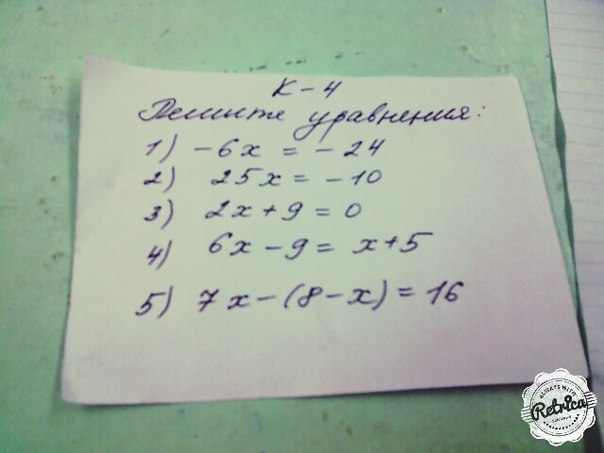 К-4
Решите уравнения:
1) -6x = -24
2) 25x = -10
3) 2x+9=0
4) 6x-9= x+5
5) 7x-(8-x)=16
ALWAYS WITH
Retrica